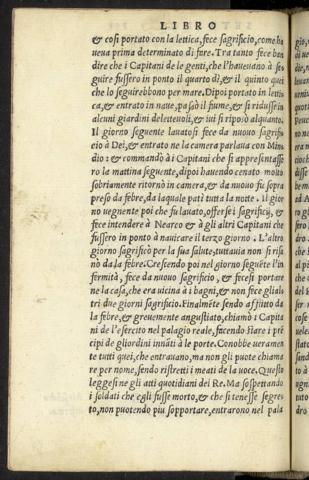 LIBRO
& cosi portato con la lettica, fece sagrificio, come ha
ueua prima determinato di fare. Tra tanto fece ben
dire che i Capitani de le genti, che l'haueuano à se
guire fussero in ponto il quarto dì, & il quinto quei
che lo seguirebbono per mare. Dipoi portato in letti
ca, & entrato in naue, passò il fiume, & si ridusse in
alcuni giardini deletteuoli, & iui si riposò alquanto.
Il giorno seguente lauatosi fece da nuouo sagrifi
cio à Dei, & entrato ne la camera parlaua con Min
dio: & commandò à i Capitani che si appresentasse
ro la mattina seguente, dipoi hauendo cenato molto
sobriamente ritornò in camera, & da nuouo fu sopra
preso da febre, da laquale patì tutta la notte. Il gior
no uegnente poi che fu lauato, offerse i sagrificij, &
fece intendere à Nearco & à gli altri Capitani che
fussero in ponto à nauicare il terzo giorno. L'altro
giorno sagrificò per la sua salute, tuttauia non si risa
nò da la febre. Crescendo poi nel giorno seguēte l'in
fermità, fece da nuouo sagrificio, & fecesi portare
ne la casa, che era uicina à i bagni, & non fece gli al
tri due giorni sagrificio. Finalmēte sendo afflitto da
la febre, & greuemente angustiato, chiamò i Capita
ni de l'esercito nel palagio reale, facendo stare i prē
cipi de gli ordini innāti à le porte. Conobbe ueramen
te tutti quei, che entrauano, ma non gli puote chiama
re per nome, sendo ristretti i meati de la uoce. Questo
leggesi ne gli atti quotidiani dei Re. Ma sospettando
i soldati che egli fusse morto, & che si tenesse segre
to, non puotendo piu sopportare, entrarono nel pala